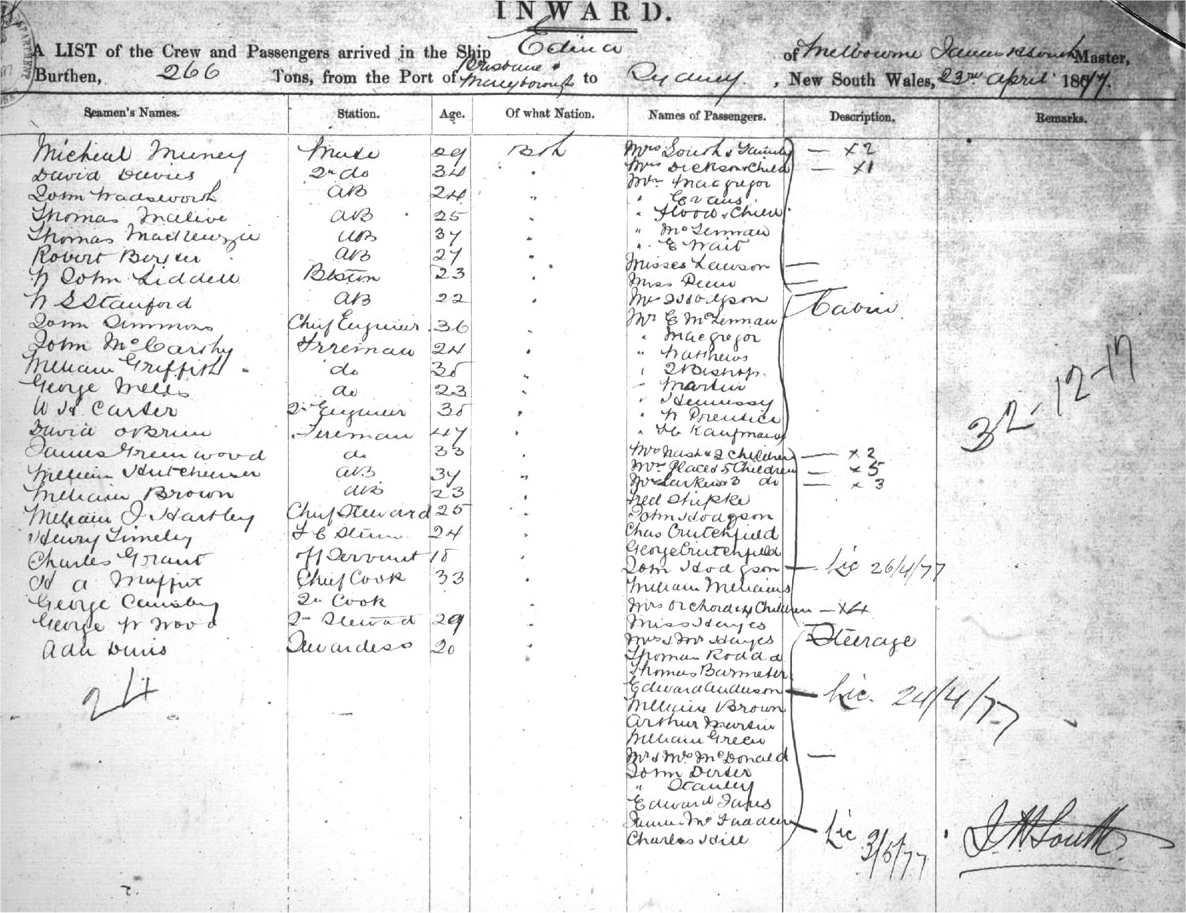 INWARD.
A LIST of the Crew and Passengers arrived in the Ship Edina of Melbourne James H South Master,
Burthen, 266 Tons, from the Port of Brisbane & Maryborough to Sydney, New South Wales, 23rd April 1877.
Seamen's Names. Station. Age. Of what Nation. Names of Passengers. Description. Remarks.
Micheal Muney Mate 29 Bsh Mrs South & Family — x2
David Davies 2nd do 34 " Mrs Dickson & Child — x1
John Wadsworth AB 24 " Mrs Macgregor
Thomas AB 25 " " Evans
Thomas MacKenzie AB 37 " " Flood & Child
Robert AB 27 " " McLennan
" E Wait
W John Liddell 23 " Misses Lawson —
Miss —
W S Stanford AB 22 " Mr Hodgson Cabin
John Simmons Chief Engineer 36 " Mr E McLennan
John McCarthy Fireman 24 " " Macgregor
William Griffith do 35 " " Matthews
George do 23 " " Bishop
" Martin
W H Carter 2nd Engineer 35 " " Hennessy
" W Prentice
David OBrien Fireman 47 " " Kaufman
James Greenwood do 33 " Mrs Nash & 2 Children — x2
William Hutchinson AB 37 " Mrs Place & 5 Children — x5
William Brown AB 23 " Mrs Larkin & 3 do — x3
Fred
William J Hartley Chief Steward 25 " John Hodgson
Henry 24 " Chas Crutchfield
Charles Grant Servant 18 " George Crutchfield
H A Moffit Chief Cook 33 " John Hodgson — Lic 26/4/77
William Williams
George 2nd Cook " Mrs Orchard & 4 Children — x4
George W Wood 2nd Steward 29 " Miss Hayes
Ada Stewardess 20 " Mrs & Mr Hayes Steerage
Thomas Rodda
Thomas
24 Edward Anderson — Lic. 24/4/77
William Brown
Arthur Martin
William Green
Mr & Mrs McDonald —
John
" Stanley
Edward
James McFadden — Lic 3/5/77
Charles Hill
32-12-17
J H South